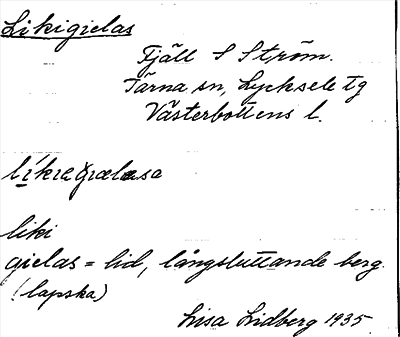 Likigielas
Fjäll S Ström.
Tärna sn, Lycksele tg
Västerbottens l.
liki
gielas = lid, långsluttande berg.
(lapska)
Lisa Lidberg 1935